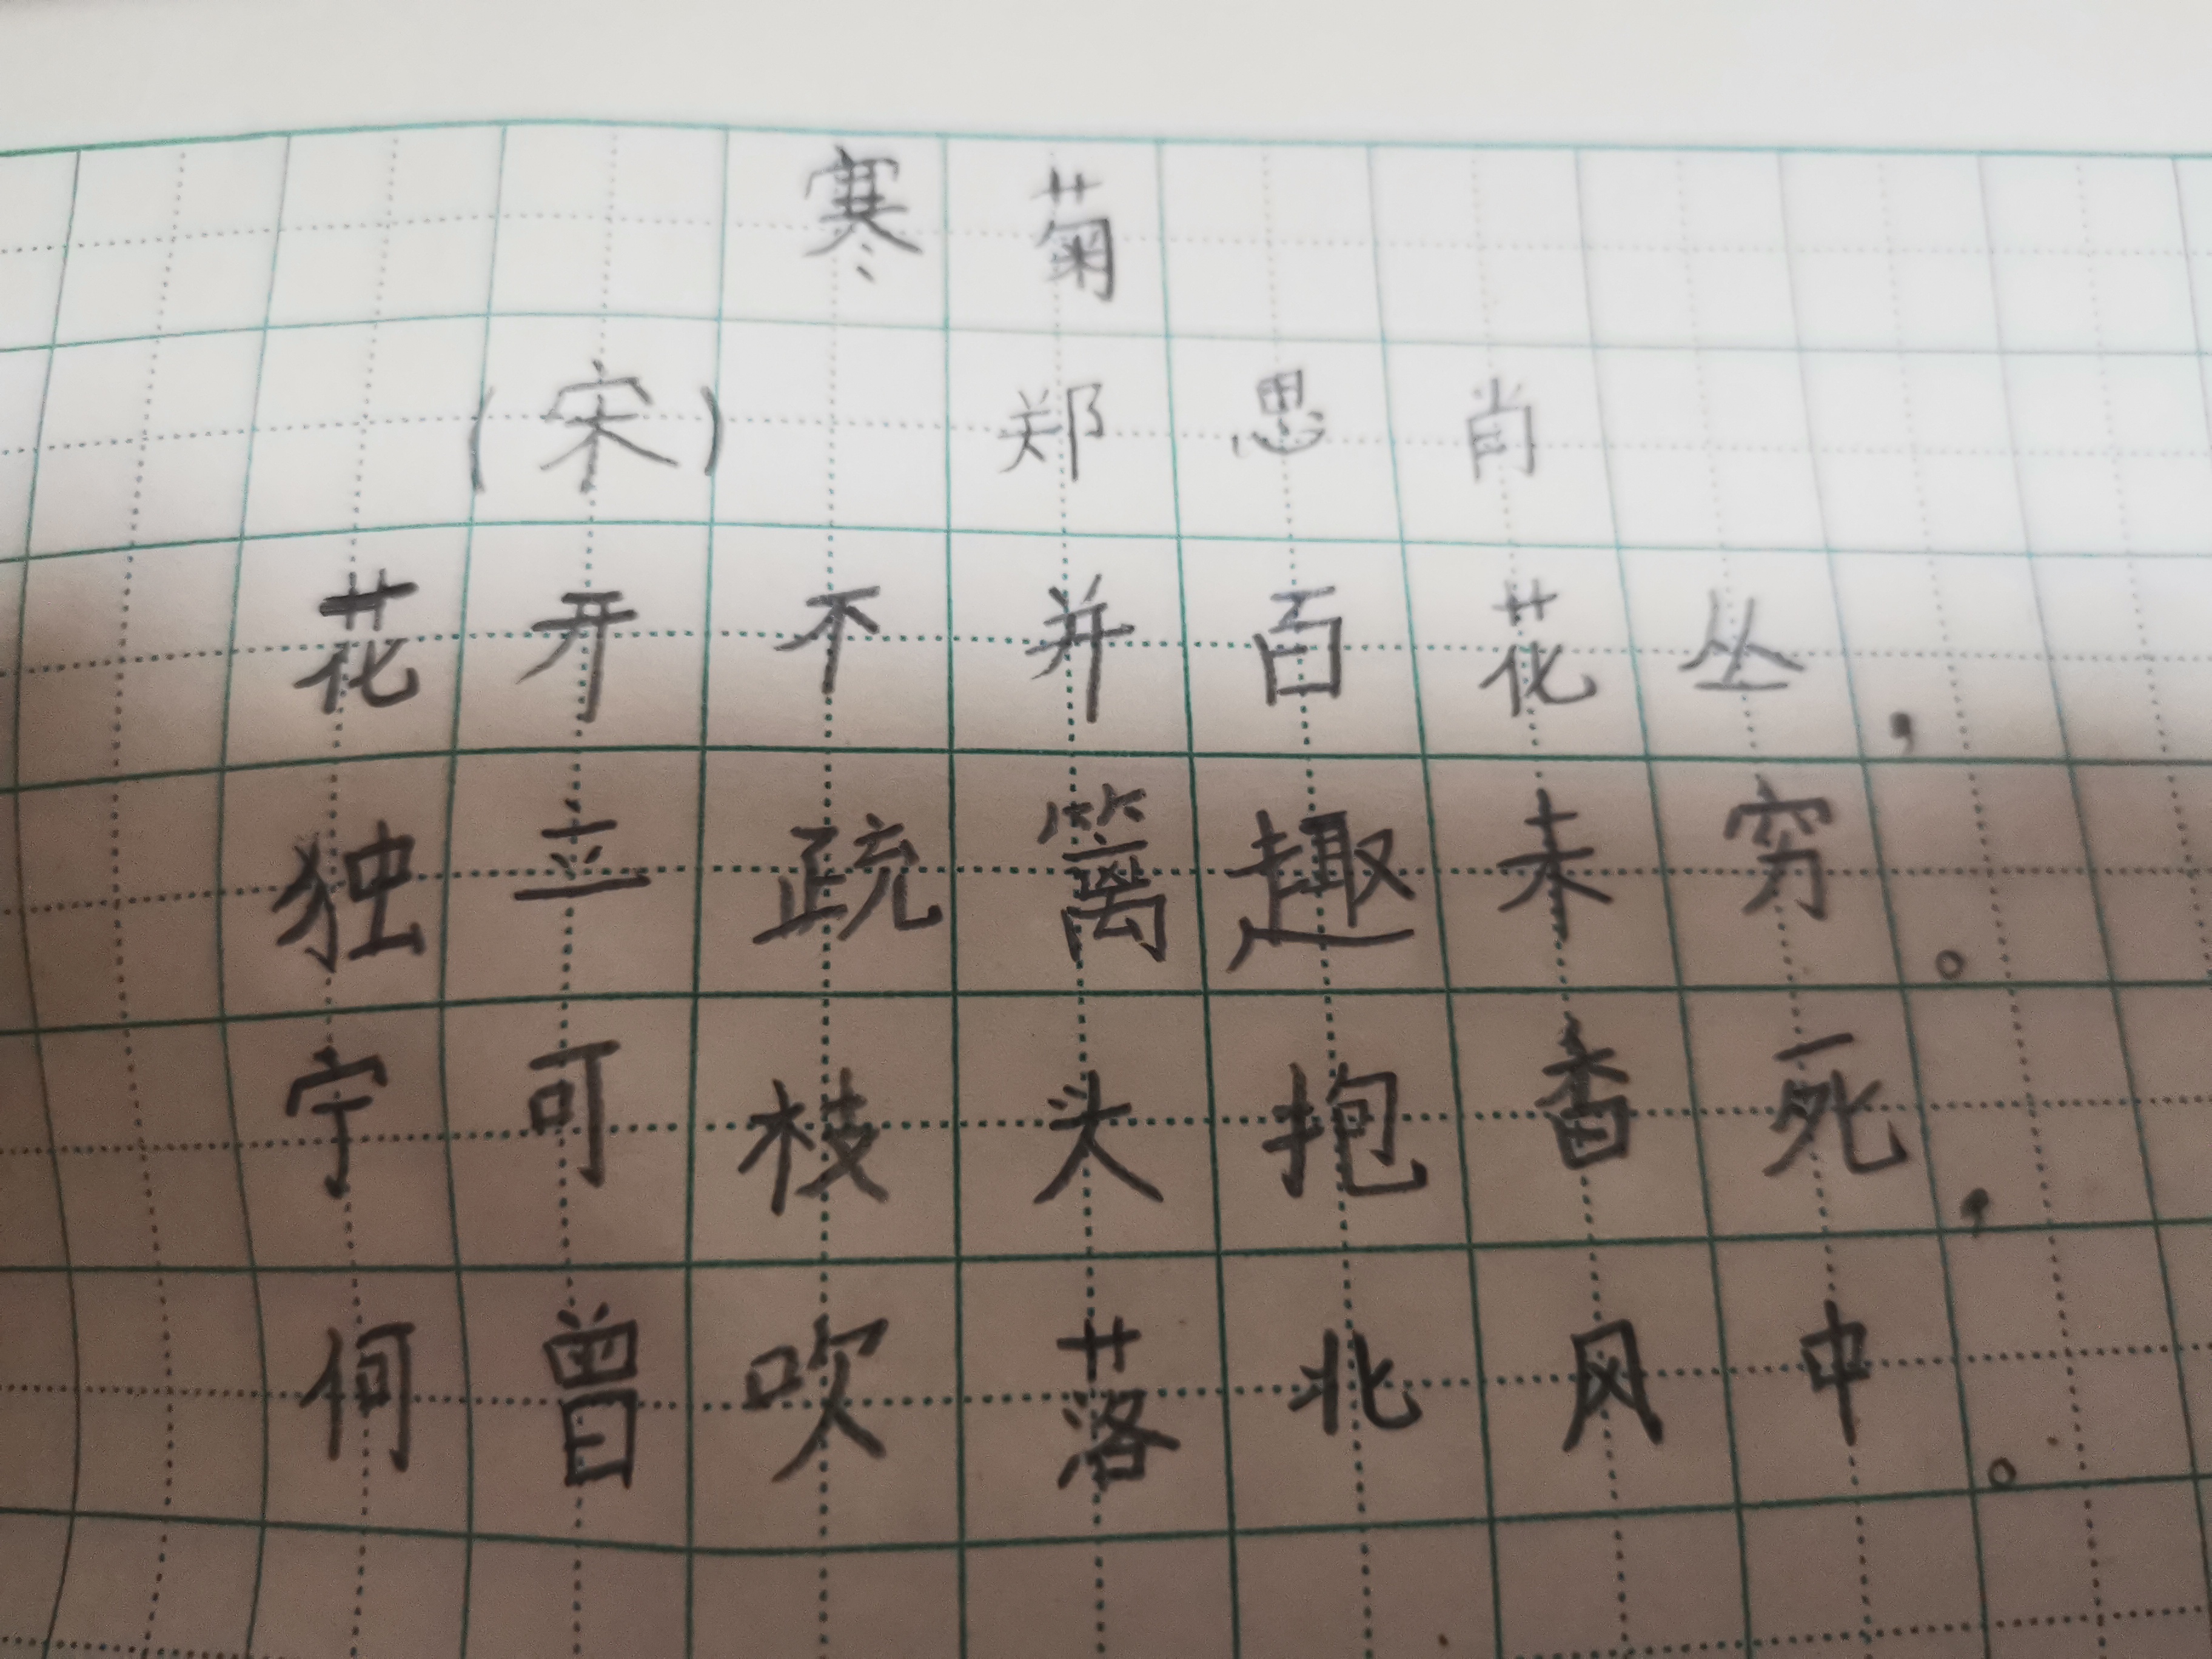 寒菊
（宋） 郑思肖
花开不并百花丛，
独立疏篱趣未穷。
宁可枝头抱香死，
何曾吹落北风中。